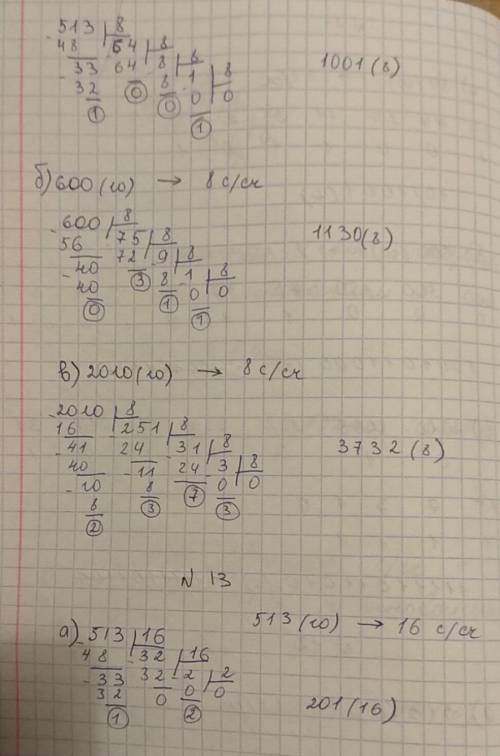 513 | 8
48 64 | 8
33 64 8 | 8
32 0 8 1 | 8
1 0 0 0
1
1001(8)
б) 600(10) → 8 с/сч
600 | 8
56 75 | 8
40 72 9 | 8
40 3 8 1 | 8
0 1 0 0
1
1130(8)
в) 2010(10) → 8 с/сч
2010 | 8
16 251 | 8
41 24 31 | 8
40 11 24 3 | 8
10 8 7 0 0
8 3 3
2
3732(8)
N 13
а) 513(10) → 16 с/сч
513 | 16
48 32 | 16
33 32 2 | 2
32 0 0 0
1 2
201(16)